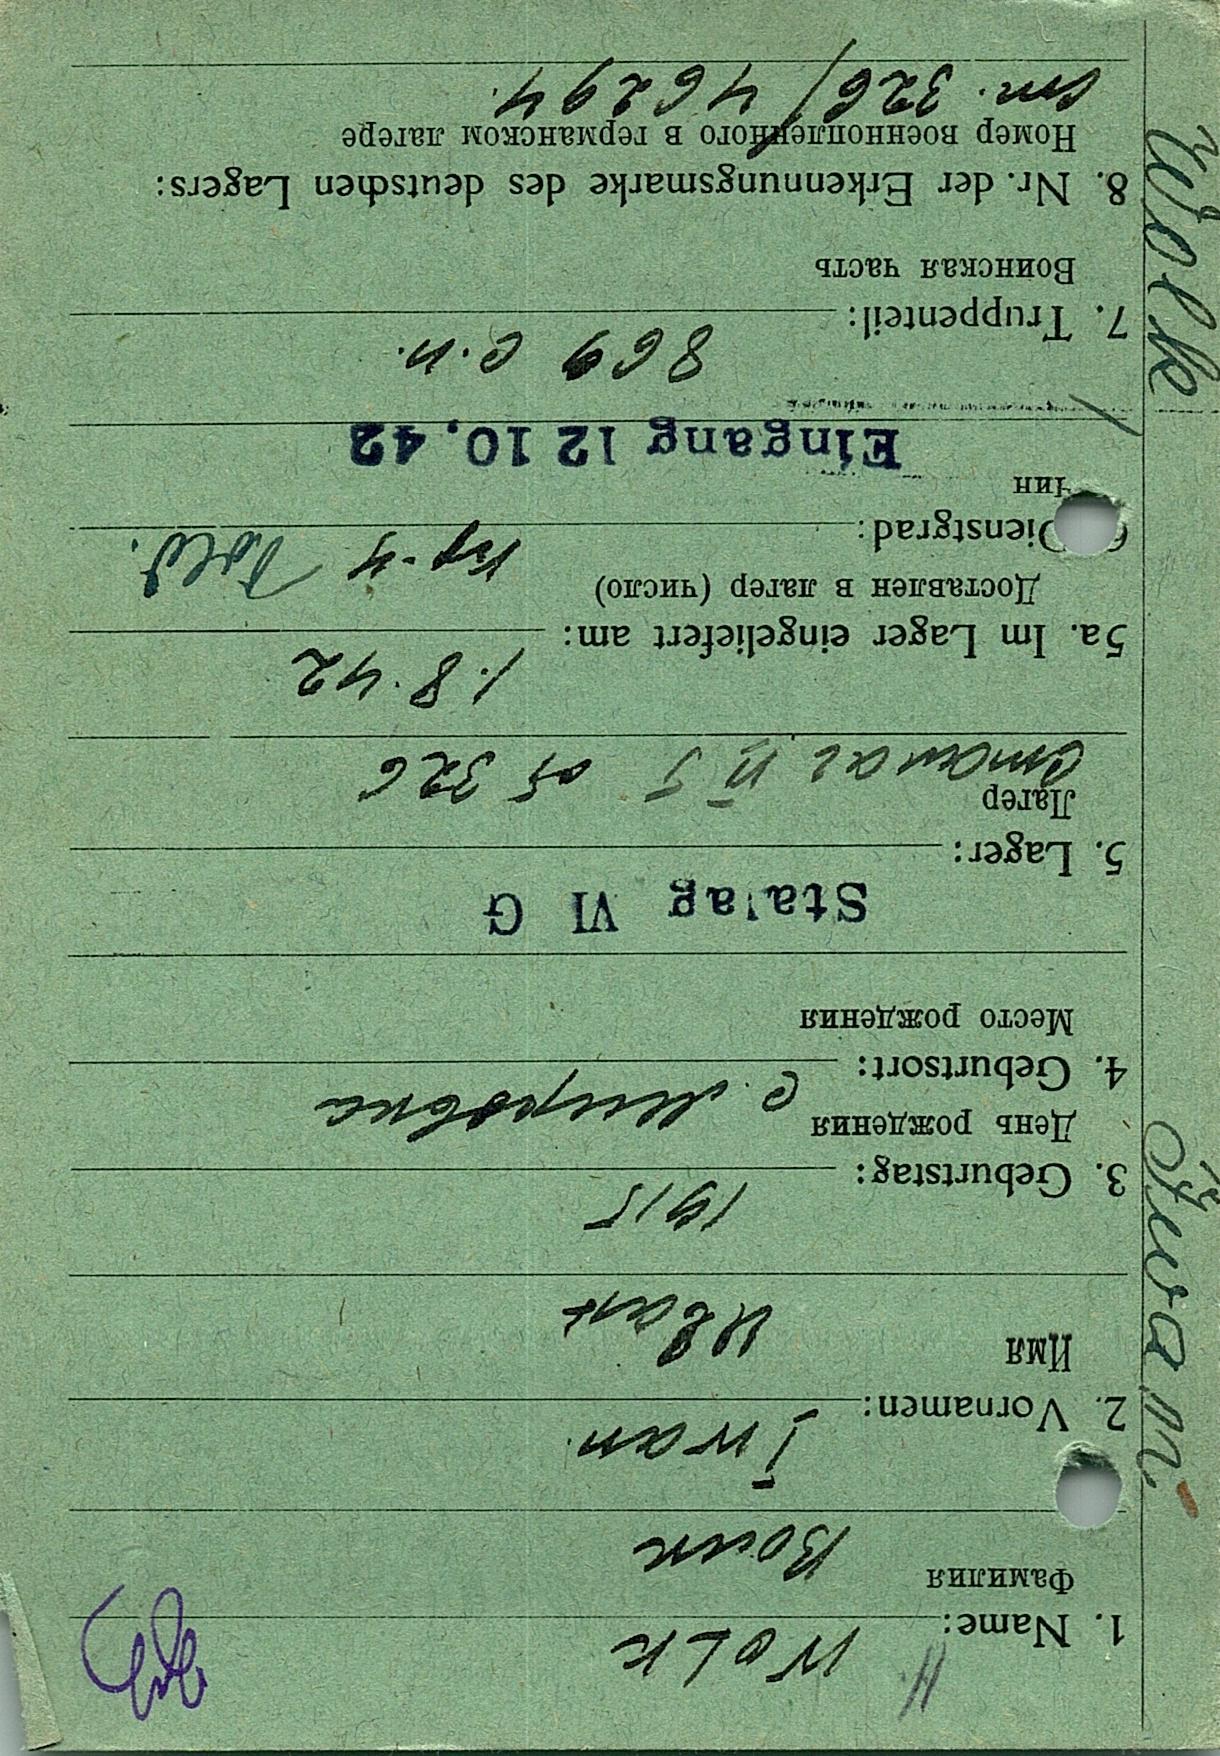 1. Name: WOLK
Фамилия Волк
2. Vornamen: Iwan
Имя Иван
3. Geburtstag: 1915
День рождения
4. Geburtsort: с.
Место рождения
Stalag VI G
5. Lager:
Лагер сталаг об 326
5a. Im Lager eingeliefert am: 1.8.42
Доставлен в лагер (число)
6. Dienstgrad: кр-ц Sold.
Чин
Eingang 12 10. 42
7. Truppenteil: 869 с.п.
Воинская часть
8. Nr. der Erkennungsmarke des deutschen Lagers:
Номер военнопленного в германском лагере
ст. 326/46294.
Wolk
Iwan